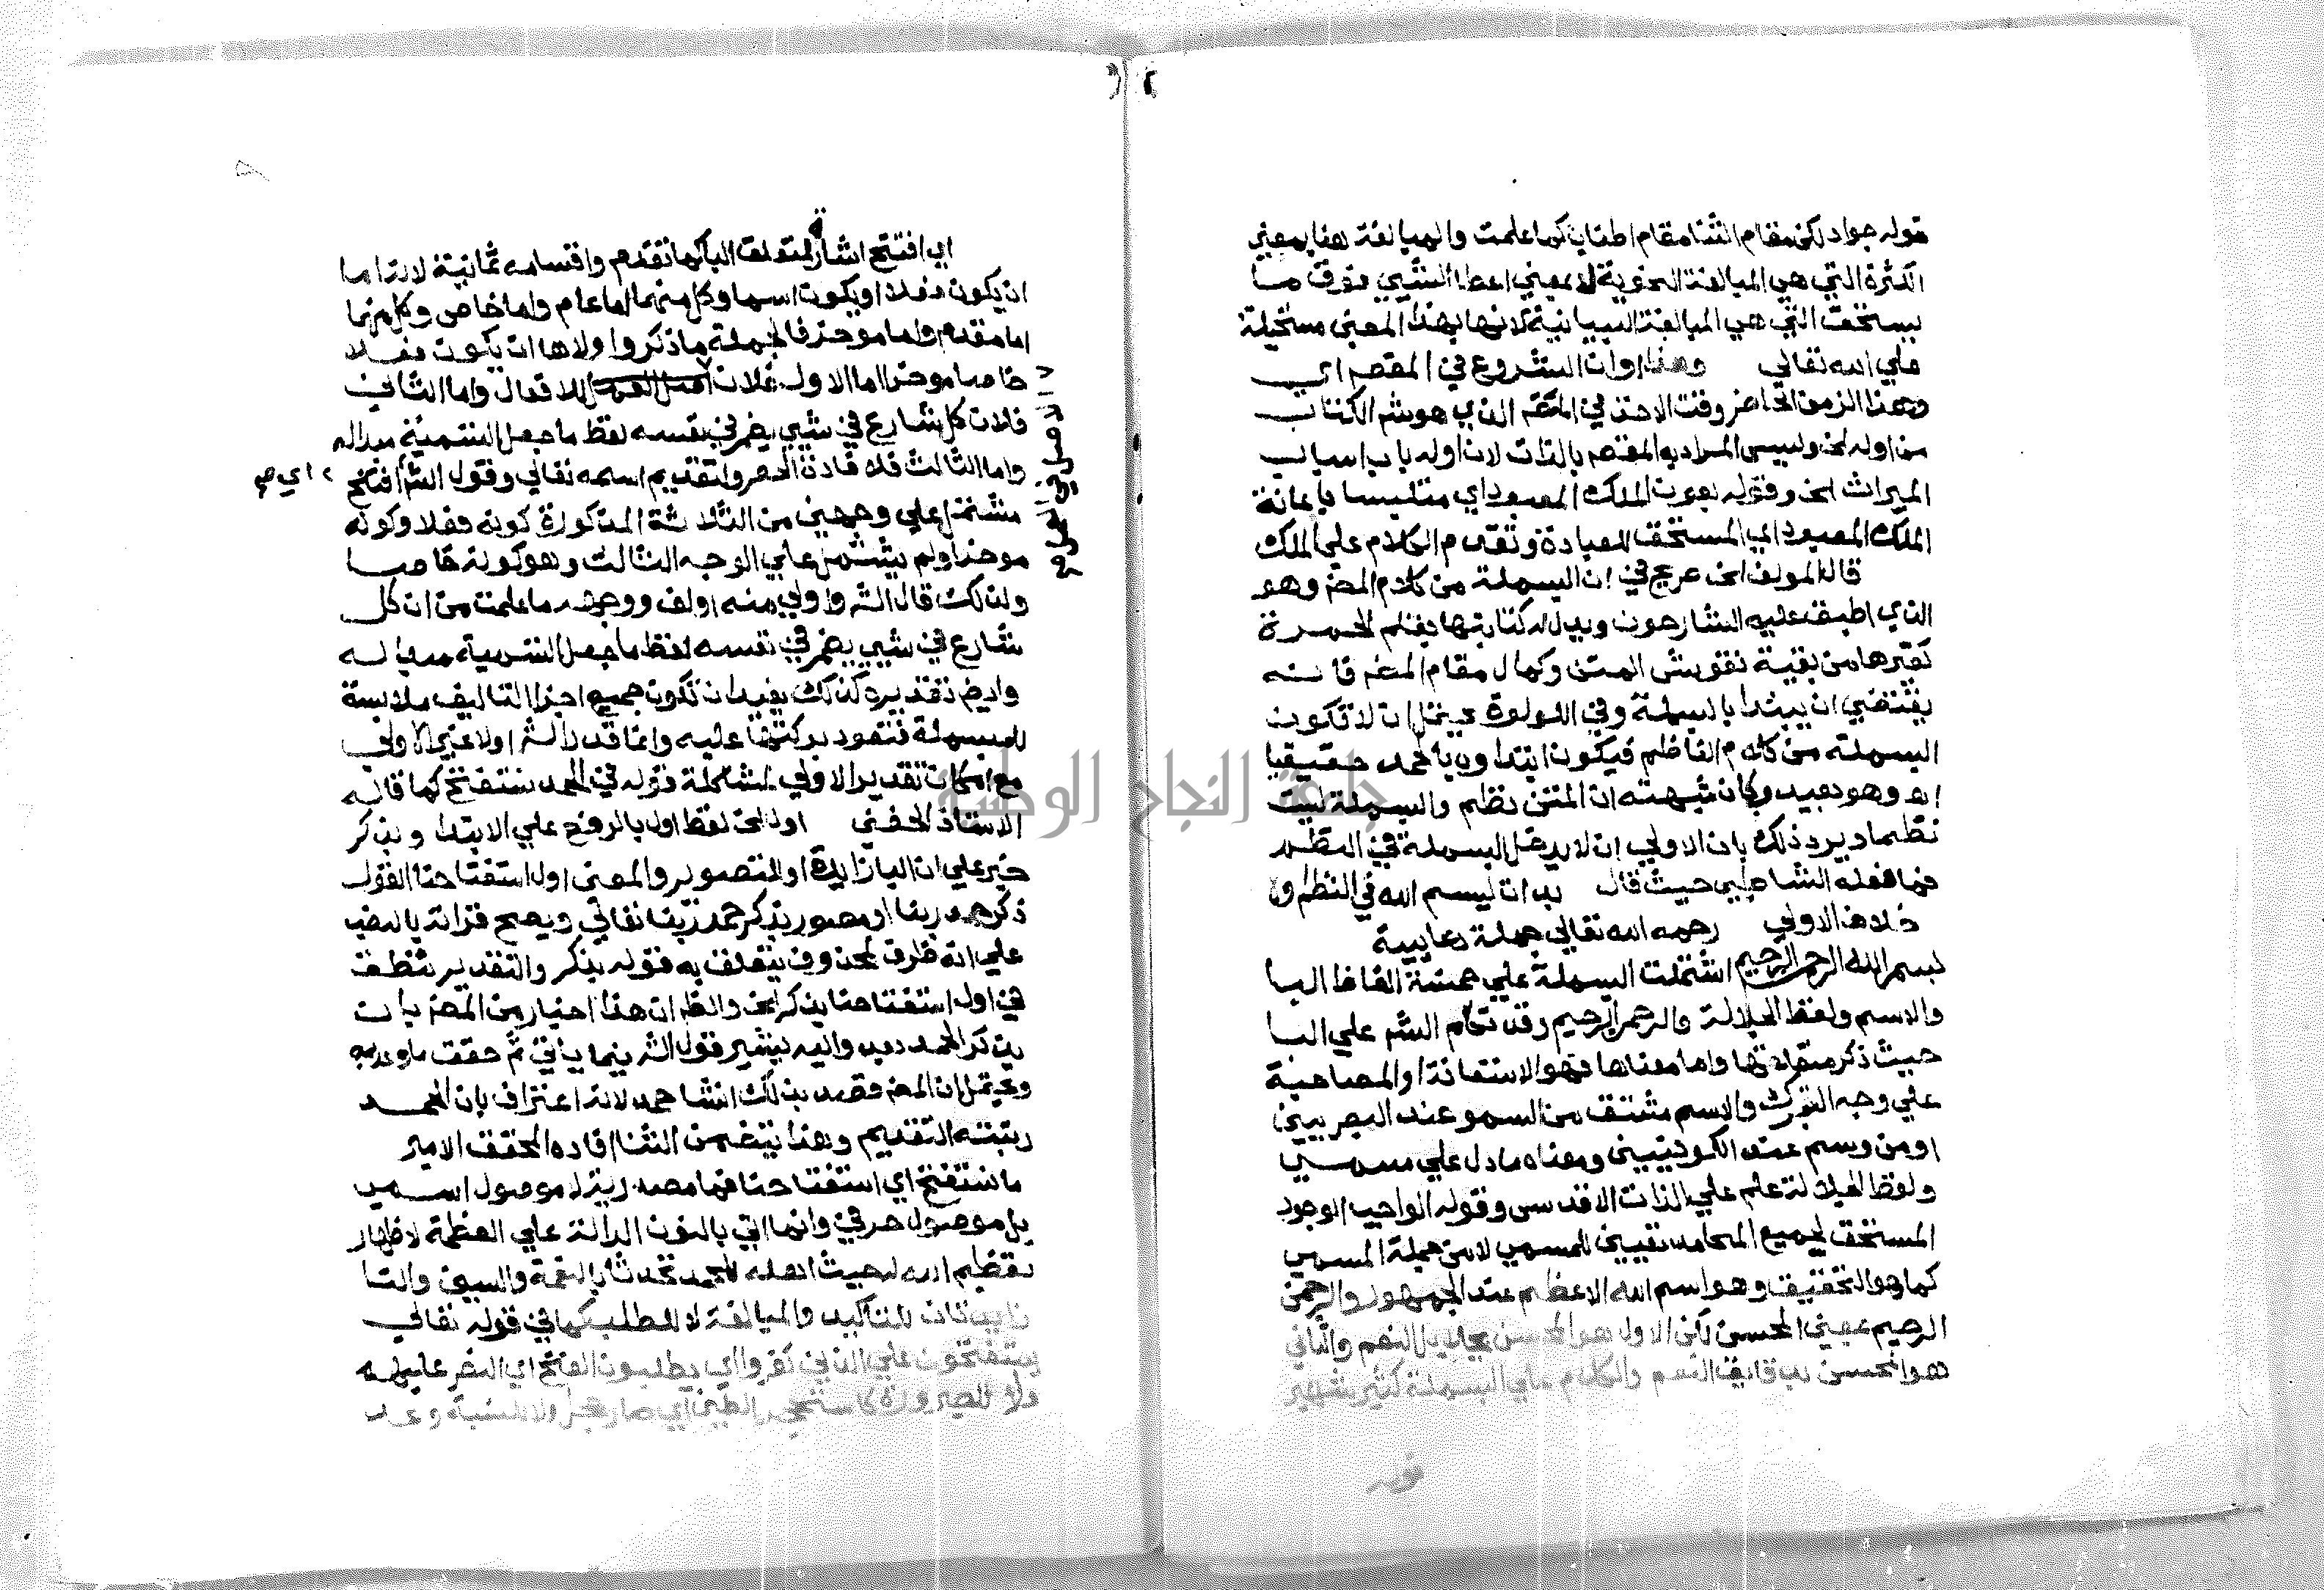 قوله جواد لكن مقام الثنا مقام اطناب كما علمت والمبالغة هنا بمعني
الكثرة التي هي المبالغة النحوية لا بمعني اعطا الشيي فوق ما
يستحق التي هي المبالغة البيانية لانها بهذا المعني مستحيلة
علي الله تعالي وهذا اوان الشروع في المقصد اي
وهذا الزمن الحاضر وقت الاخذ في المقصد الذي هو شم الكتاب
من اوله الخ وليس المراد به المقصد بالذات لان اوله باب اسباب
الميراث الخ وقوله بعون الملك المعبود اي متلبسا باعانة
الملك المعبود اي المستحق للعبادة وتقدم الكلام علي الملك
قال المولف الخ عريج في ان البسملة من كلام المص وهو
الذي اطبق عليه الشارحون ويدل له كتابتها بقلم الحمرة
كغيرها من بقية نقوش المتن وكمال مقام المص فانه
يقتضي ان يبتدا بالبسملة وفي اللولوة يحتمل ان لا تكون
البسملة من كلام الناظم فيكون ابتداوه بالحمد حقيقيا
اه وهو بعيد وكان شبهته ان المتن نظم والبسملة ليست
نظما ويرد ذلك بان الاولي ان لا يدخل البسملة في النظم
فما فعله الشاطبي حيث قال بدات ببسم الله في النظم او
خلاف الاولي رحمه الله تعالي جملة دعايية
بسم الله الرحمن الرحيم اشتملت البسملة علي خمسة الفاظ البا
والاسم ولفظ الجلالة والرحمن الرحيم وقد تكلم الشم علي البا
حيث ذكر متعلقها واما معناها فهو الاستعانة او المصاحبة
علي وجه التبرك والاسم مشتق من السمو عند البصريين
او من وسم عند الكوفيين ومعناه ما دل علي مسمي
ولفظ الجلالة علم علي الذات الاقدس وقوله الواجب الوجود
المستحق لجميع المحامد تعيين للمسمي لا من جملة المسمي
كما هو التحقيق وهو اسم الله الاعظم عند الجمهور والرحمن
الرحيم بمعني المحسن لكن الاول هو المحسن بجلايل النعم والثاني
هو المحسن بدقايق النعم والكلام علي البسملة كثير شهير
قوله
اي افتتح اشارة لمتعلق البا كما تقدم واقسامه ثمانية لانه اما
ان يكون فعلا او يكون اسما وكل منهما اما عام واما خاص وكل منهما
اما مقدم واما موخر فالجملة ما ذكروا ولاها ان يكون فعلا
خاصا موخرا اما الاول فلان اصل العمل للافعال واما الثاني
فلان كل شارع في شيي يضمر في نفسه لفظ ما جعل التسمية مبدا له
واما الثالث فلافادة الحصر ولتقديم اسمه تعالي وقول الشم افتتح
مشتمل علي وجهين من الثلاثة المذكورة كونه فعلا وكونه
موخرا ولم يشتمل علي الوجه الثالث وهو كونه خاصا
ولذلك قال الشم واولي منه اولف ووجهه ما علمت من ان كل
شارع في شيي يضمر في نفسه لفظ ما جعل التسمية مبدا له
وايض تقديره كذلك يفيد ان تكون جميع اجزا التاليف ملابسة
للبسملة فتعود بركتها عليه وانما قدر الشم اولا غير الاولي
مع امكان تقدير الاولي لمشاكلة قوله في الحمد نستفتح كما قاله
الاستاذ الحفني اول الخ لفظ اول بالرفع علي الابتدا وبذكر
خبر علي ان البا زايدة او للتصوير والمعني اول استفتاحنا القول
ذكر حمد ربنا او مصور بذكر حمد ربنا تعالي ويصح قراته بالنصب
علي انه ظرف لمحذوف يتعلق به قوله بذكر والتقدير نشطف
في اول استفتاحنا بذكر الخ والظ ان هذا اخبار من المص بان
يذكر الحمد بعد واليه يشير قول الشم فيما ياتي ثم حقق ما وعد به
ويحتمل ان المص قصد بذلك انشا حمد لانه اعتراف بان الحمد
رتبته التقديم وهذا يتضمن الثنا افاده المحقق الامير
ما نستفتح اي استفتاحنا فما مصدرية لا موصول اسمي
بل موصول حرفي وانما اتي بالنون الدالة علي العظمة لاظهار
تعظيم الله له حيث اهله للحمد تحدثا بالنعمة والسين والتا
زايدتان للتاكيد والمبالغة لا للطلب كما في قوله تعالي
يستفتحون علي الذين كفروا اي يطلبون الفتح اي النصر عليهم
ولا للصيرورة كاستحجر الطين اي صار حجرا ولا للنسبة وعد